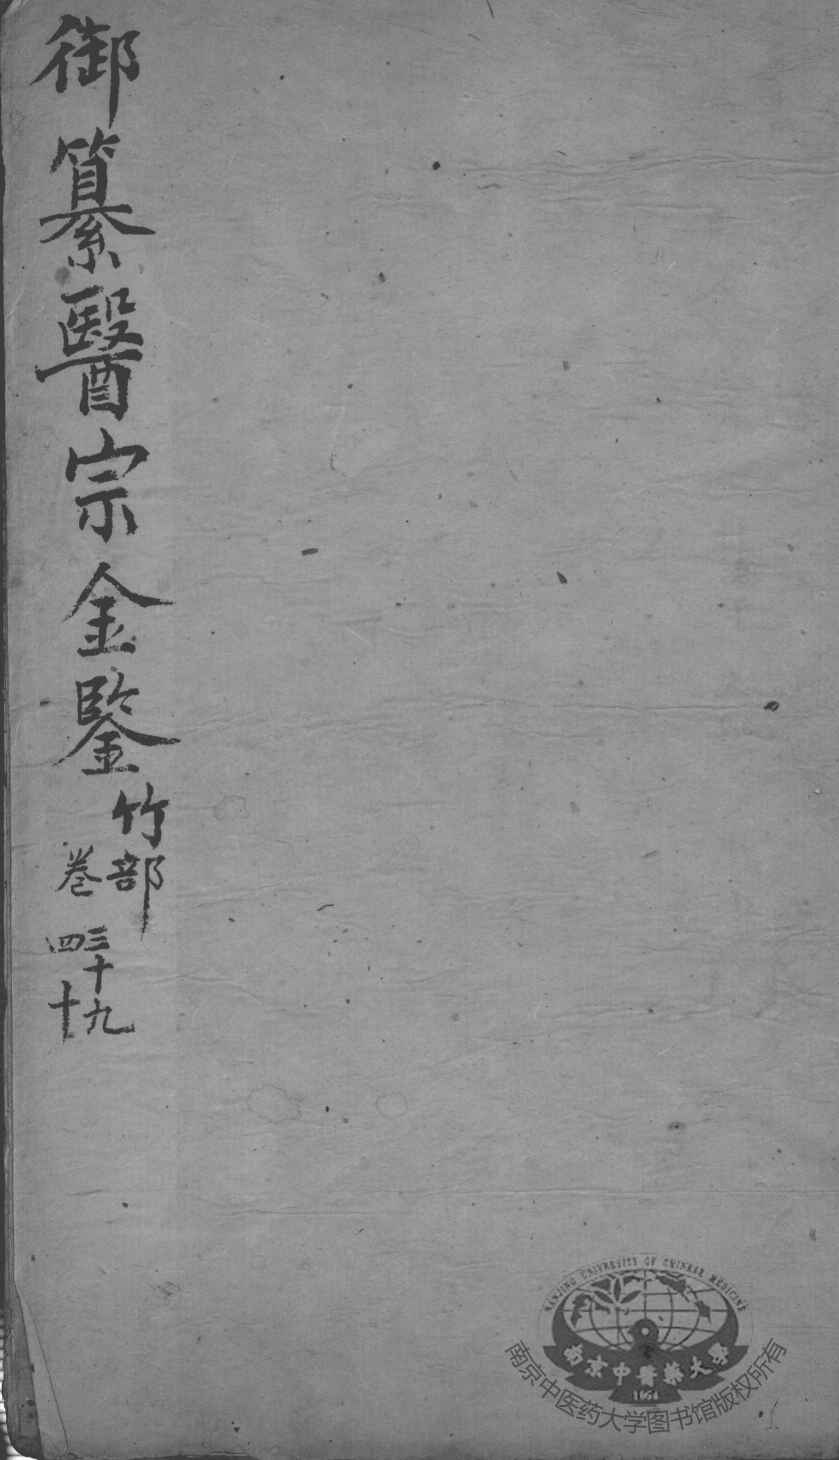 御纂醫宗金鑒
竹部
卷
三十九
四十
NANJING UNIVERSITY OF CHINESE MEDICINE
南京中醫藥大學
1954
南京中医药大学图书馆版权所有